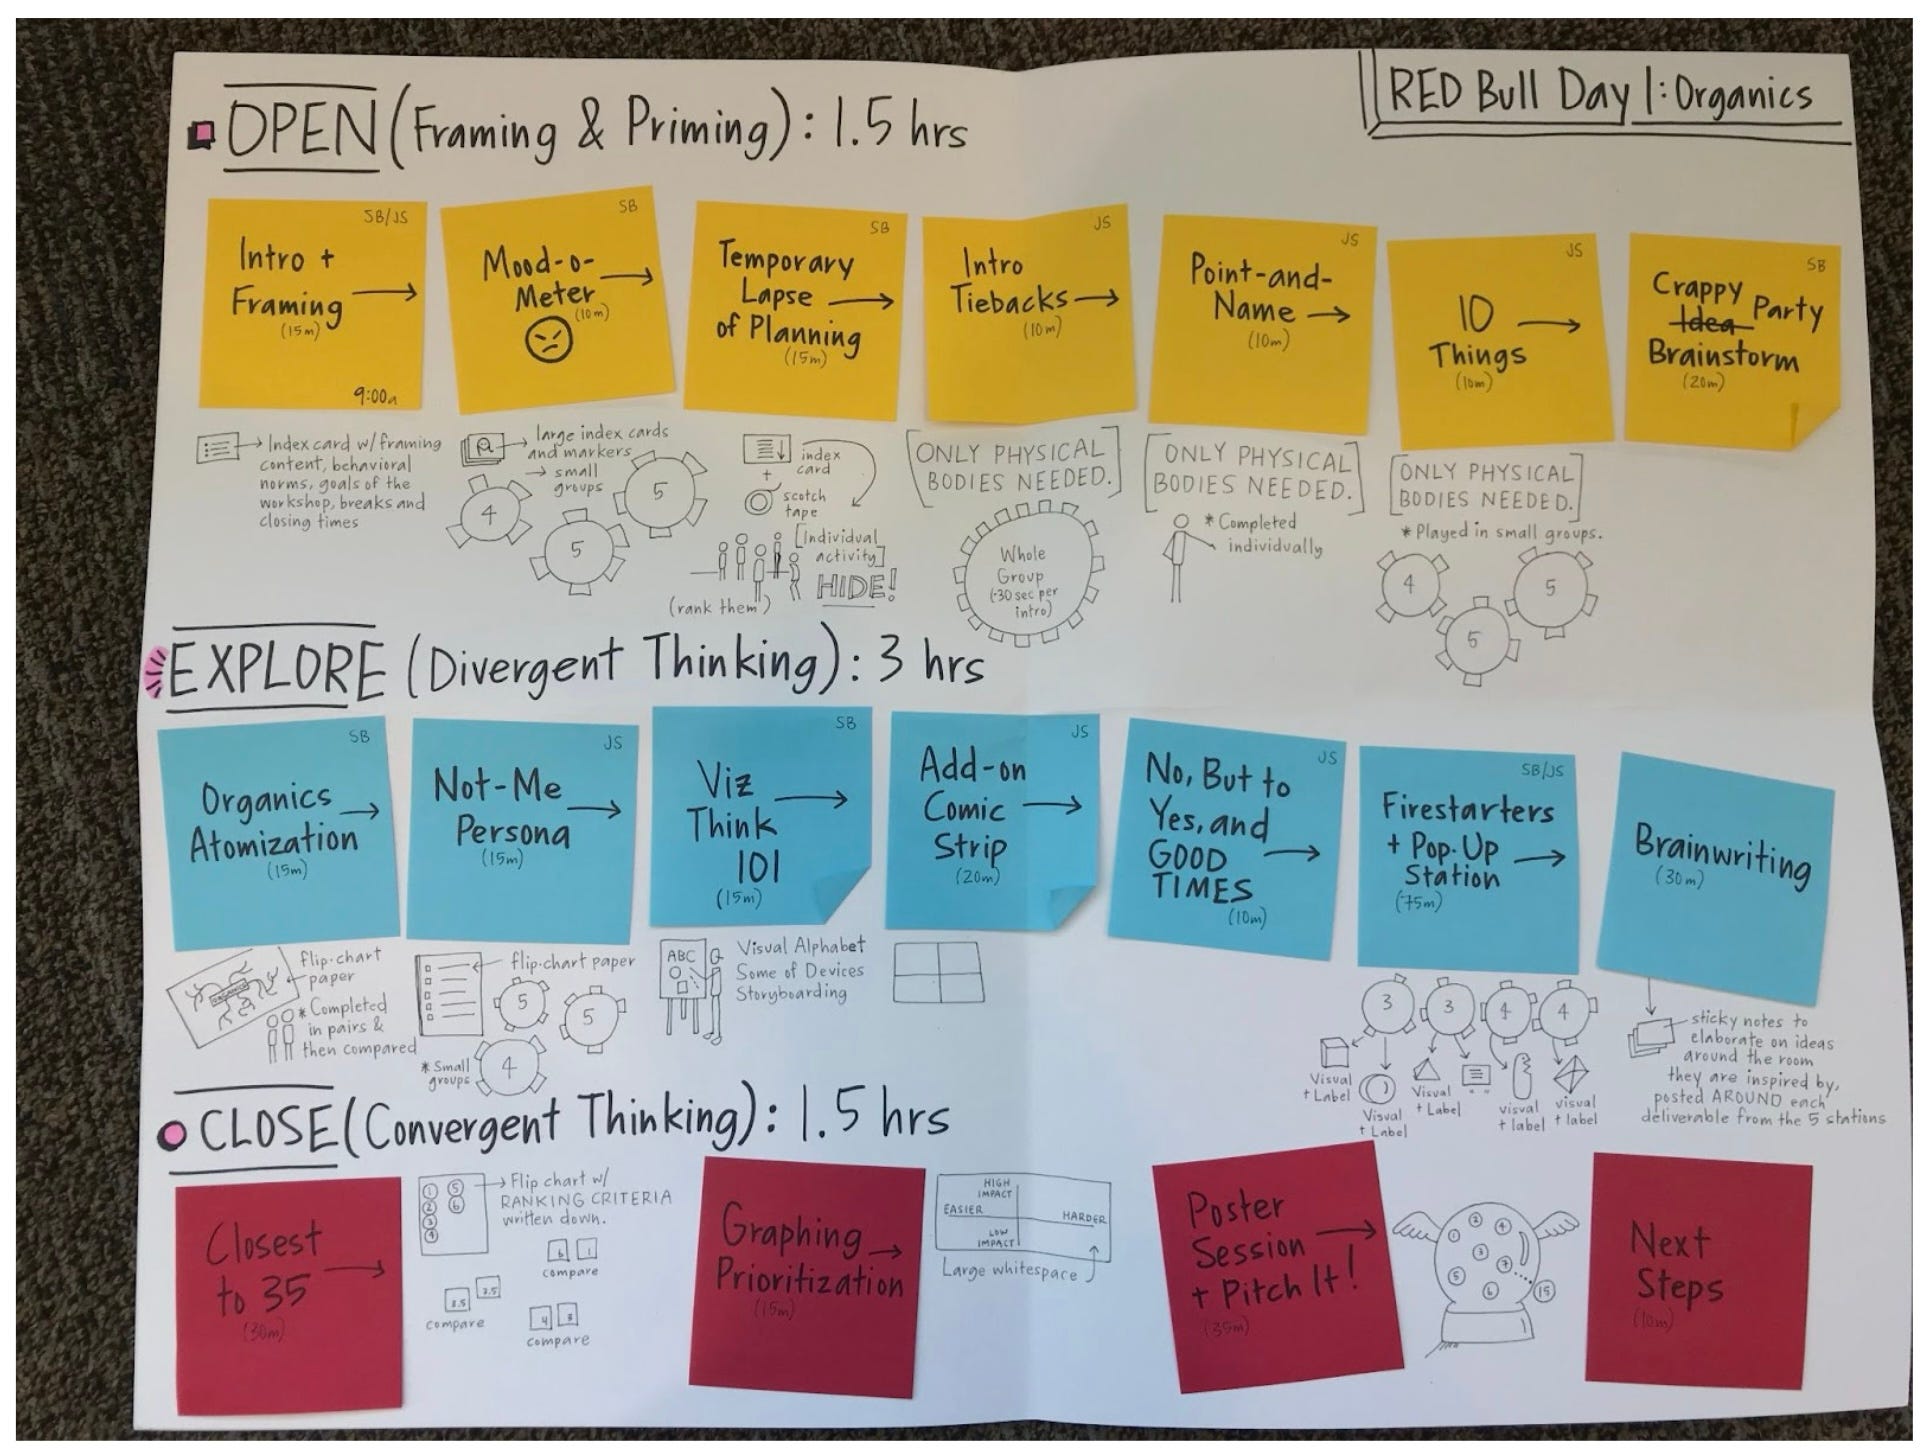 RED Bull Day 1: Organics
OPEN (Framing & Priming): 1.5 hrs
SB/JS
Intro +
Framing
(15m)
9:00a
SB
Mood-o-
Meter
(10m)
SB
Temporary
Lapse
of Planning
(15m)
JS
Intro
Tiebacks
(10m)
JS
Point-and-
Name
(10m)
JS
10
Things
(10m)
SB
Crappy
Idea Party
Brainstorm
(20m)
Index card w/framing
content, behavioral
norms, goals of the
workshop, breaks and
closing times
large index cards
and markers
small
groups
4
5
5
index
card
+
scotch
tape
[Individual
activity]
HIDE!
(rank them)
[ONLY PHYSICAL
BODIES NEEDED.]
Whole
Group
(~30 sec per
intro)
[ONLY PHYSICAL
BODIES NEEDED.]
* Completed
individually
[ONLY PHYSICAL
BODIES NEEDED.]
* Played in small groups.
4
5
5
EXPLORE (Divergent Thinking): 3 hrs
SB
Organics
Atomization
(15m)
JS
Not-Me
Persona
(15m)
SB
Viz
Think
101
(15m)
JS
Add-on
Comic
Strip
(20m)
JS
No, But to
Yes, and
GOOD
TIMES
(10m)
SB/JS
Firestarters
+ Pop-Up
Station
(75m)
Brainwriting
(30m)
flip-chart
paper
ORGANICS
* Completed
in pairs &
then compared
flip-chart paper
5
5
4
* Small
groups
ABC
Visual Alphabet
Some of Devices
Storyboarding
3
3
4
4
Visual
+ Label
Visual
+ Label
Visual
+ Label
visual
+ label
visual
+ label
sticky notes to
elaborate on ideas
around the room
they are inspired by,
posted AROUND each
deliverable from the 5 stations
CLOSE (Convergent Thinking): 1.5 hrs
Closest
to 35
(30m)
1 5
2 6
3
4
Flip chart w/
RANKING CRITERIA
written down.
6 1
compare
3.5 3.5
compare
4 3
compare
Graphing
Prioritization
(15m)
HIGH
IMPACT
EASIER
HARDER
LOW
IMPACT
Large whitespace
Poster
Session
+ Pitch It!
(35m)
2
4
1
3
7
5
6
15
Next
Steps
(10m)